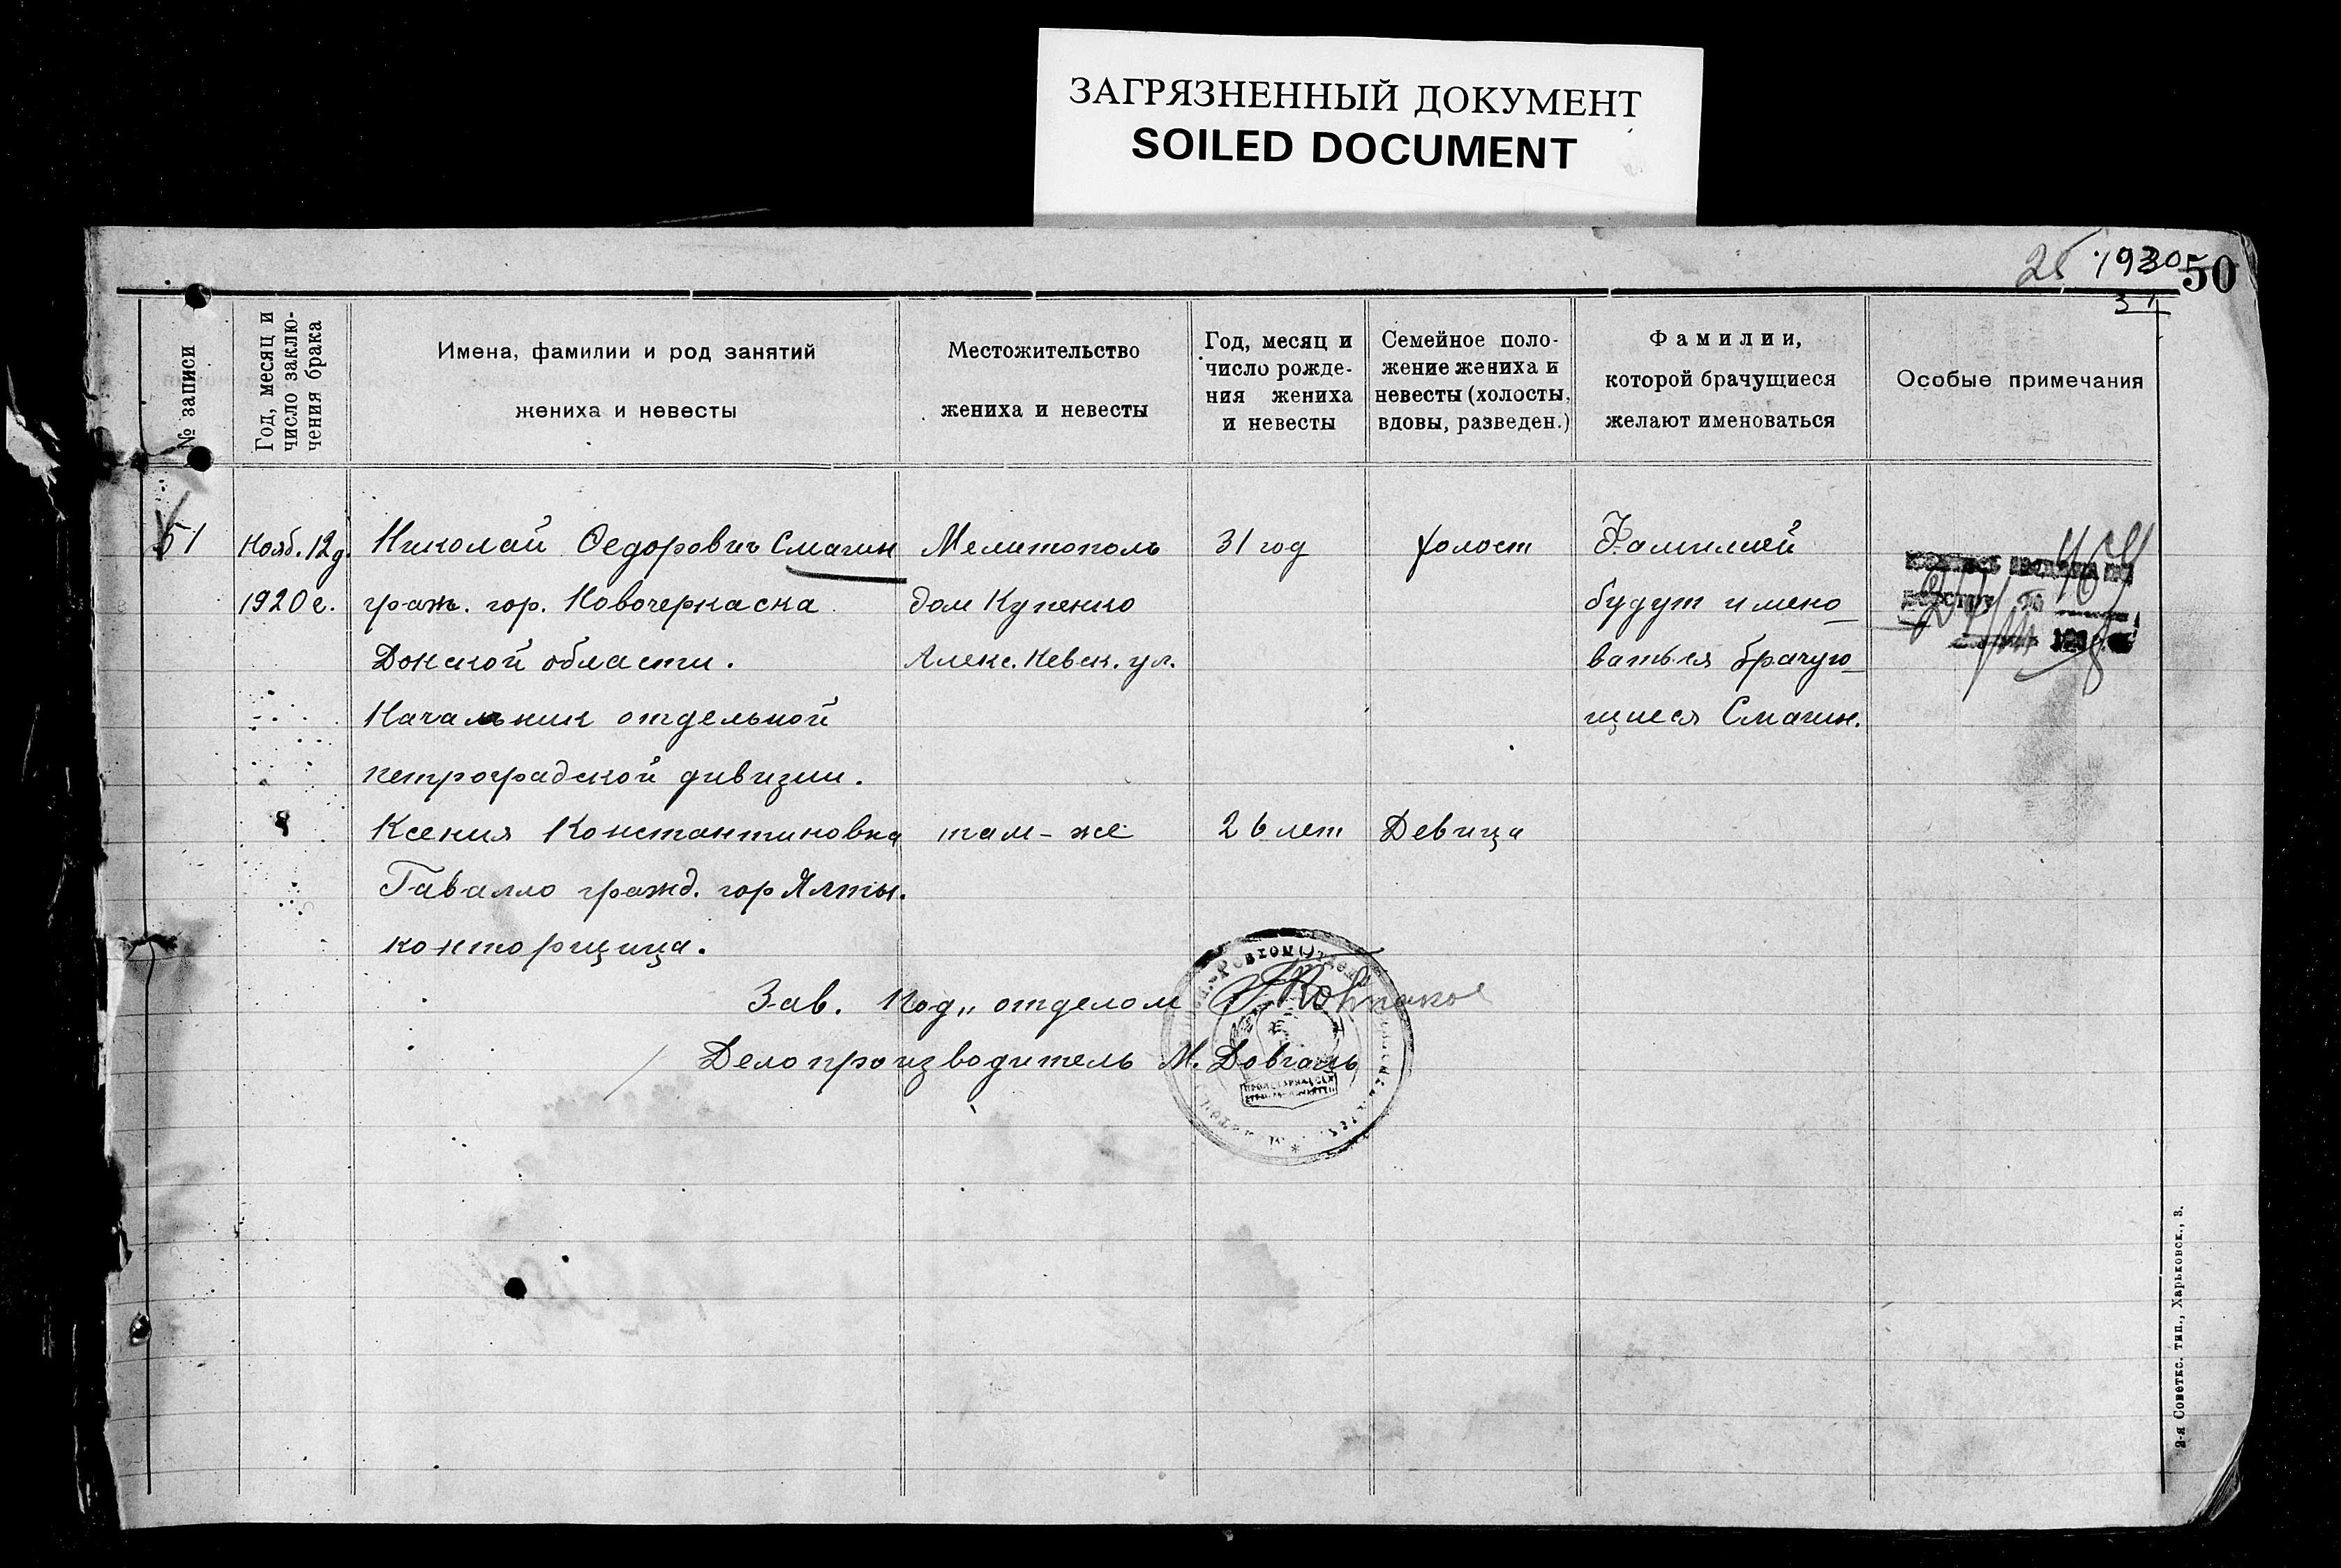 ЗАГРЯЗНЕННЫЙ ДОКУМЕНТ
SOILED DOCUMENT
50
№ записи
Год, месяц и
число заклю-
чения брака
Имена, фамилии и род занятий
жениха и невесты
Местожительство
жениха и невесты
Год, месяц и
число рожде-
ния жениха
и невесты
Семейное поло-
жение жениха и
невесты (холосты,
вдовы, разведен.)
Фамилии,
которой брачущиеся
желают именоваться
Особые примечания
51
Нояб. 12 д.
1920 г.
Николай Федорович Смагин
граж. гор. Новочеркаска
Донской области.
Начальник отдельной
петроградской дивизии.
Ксения Константиновна
Гавалло гражд. гор Ялты.
конторщица.
Мелитополь
дом Купенко
Алекс. Невск. ул.
там-же
31 год
26 лет
холост
Девица
Фамилией
будут имено
ваться брачую
щиеся Смагин.
Зав. Под., отделом
Делопроизводитель М. Довгаль
2-я Советск. тип., Харьковск., 3.